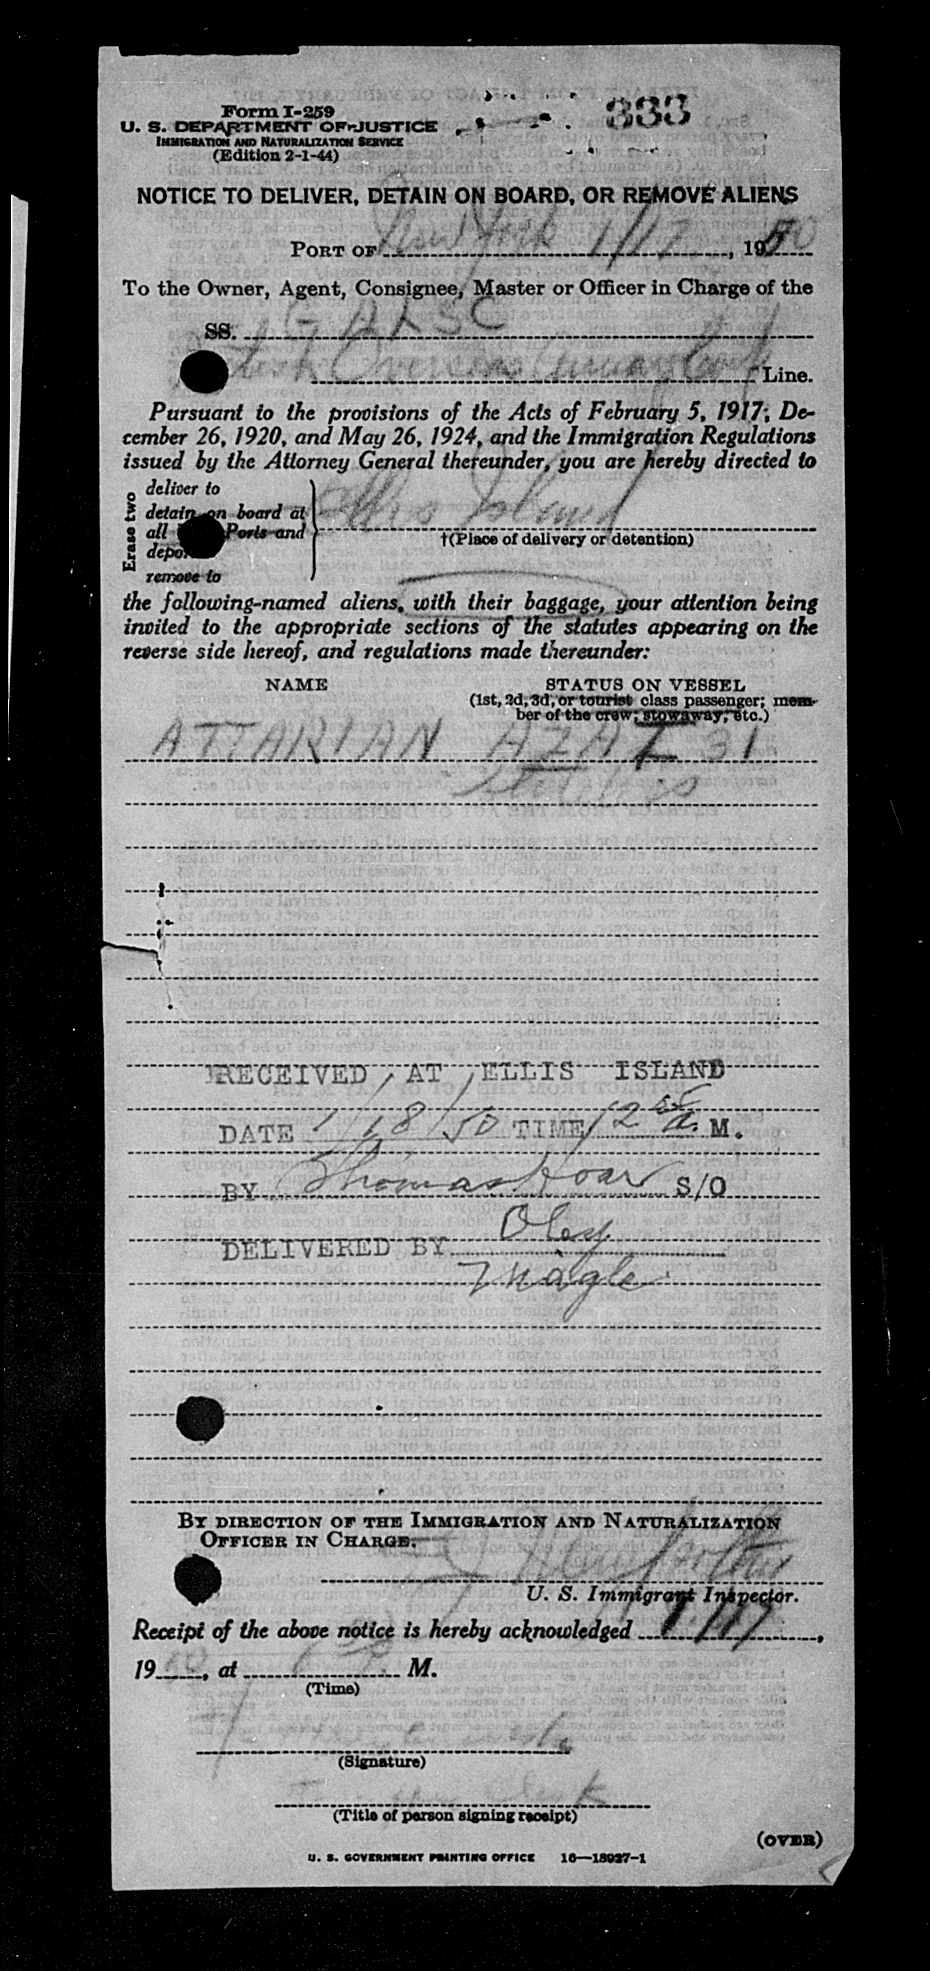 333
Form I-259
U. S. DEPARTMENT OF JUSTICE
IMMIGRATION AND NATURALIZATION SERVICE
(Edition 2-1-44)
NOTICE TO DELIVER, DETAIN ON BOARD, OR REMOVE ALIENS
PORT OF New York 1/17, 1950
To the Owner, Agent, Consignee, Master or Officer in Charge of the
SS. G-ALSC
British Overseas Airways Corp Line.
Pursuant to the provisions of the Acts of February 5, 1917; De-
cember 26, 1920, and May 26, 1924, and the Immigration Regulations
issued by the Attorney General thereunder, you are hereby directed to
Erase two
deliver to
detain on board at
all Ports and
remove to
Ellis Island
†(Place of delivery or detention)
the following-named aliens, with their baggage, your attention being
invited to the appropriate sections of the statutes appearing on the
reverse side hereof, and regulations made thereunder:
NAME STATUS ON VESSEL
(1st, 2d, 3d, or tourist class passenger; mem-
ber of the crew; stowaway; etc.)
ATTARIAN AZAT 31
RECEIVED AT ELLIS ISLAND
DATE 1/18/50 TIME 12 A. M.
BY Thomas Hoar S/O
DELIVERED BY Oley
Nagle
BY DIRECTION OF THE IMMIGRATION AND NATURALIZATION
OFFICER IN CHARGE.
U. S. Immigrant Inspector.
Receipt of the above notice is hereby acknowledged 1/17,
1950, at M.
(Time)
(Signature)
Clerk
(Title of person signing receipt)
(OVER)
U. S. GOVERNMENT PRINTING OFFICE 16—18927-1